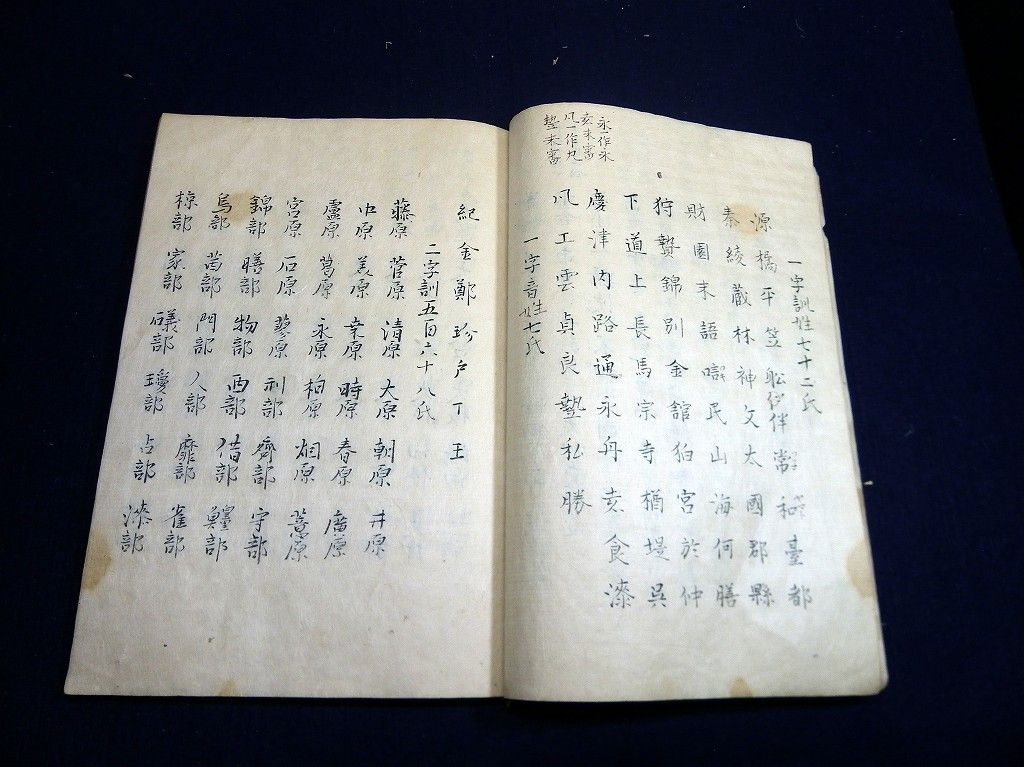 永一作氷
亥未審
凡一作丸
塾未審
一字訓姓七十二氏
源橘平笠舩伴常和臺都
秦綾蔵林神文太國郡縣
財園末語囎民山海何膳
狩贄錦別金舘狛宮於仲
下道上長馬宗寺楢堤呉
慶津内路通永丹亥食漆
凡工雲貞良塾私勝
一字音姓七氏
紀金鄭珍戸丁王
二字訓五百六十八氏
藤原 菅原 清原 大原 朝原 井原
中原 美原 幸原 時原 春原 廣原
廬原 葛原 永原 柏原 畑原
宮原 石原 蓼原 利部 齊部 守部
錦部 膳部 物部 西部 借部
烏部 茜部 門部 人部 靡部 雀部
椋部 家部 礒部 瓊部 占部 漆部